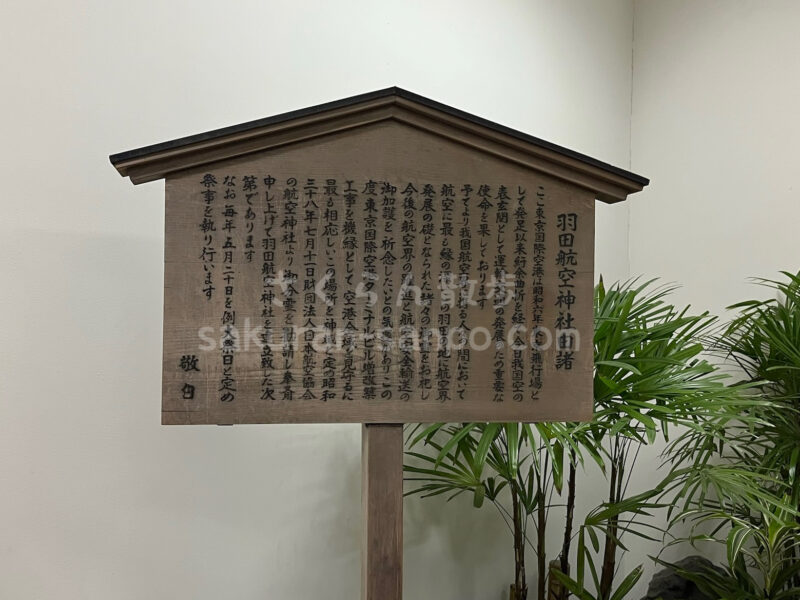 羽田航空神社由緒
ここ東京国際空港は昭和六年 飛行場と
して発足以来紆余曲折を経 今日我国空の
表玄関として運 の発展 ため重要な
使命を果しております
予てより我国航空 る人 間において
航空に最も縁の深い の羽田 地 航空界
発展の礎となられた諸々の をお祀し
今後の航空界の 進 航 安全輸送の
御加護を祈念したいとの気 ありこの
度東京国際空港ターミナルビル増改築
工事を機縁として空港全域を見守るに
最も相応しいこの場所を神域と定め昭和
三十八年七月十一日財団法人日本航空協会
の航空神社より御分霊を勧請し奉斎
申し上げて羽田航空神社を 立致 た次
第であります
なお毎年五月二十日を例大祭日と定め
祭事を執り行います
敬白
さくらん散歩
sakuran-sanpo.com